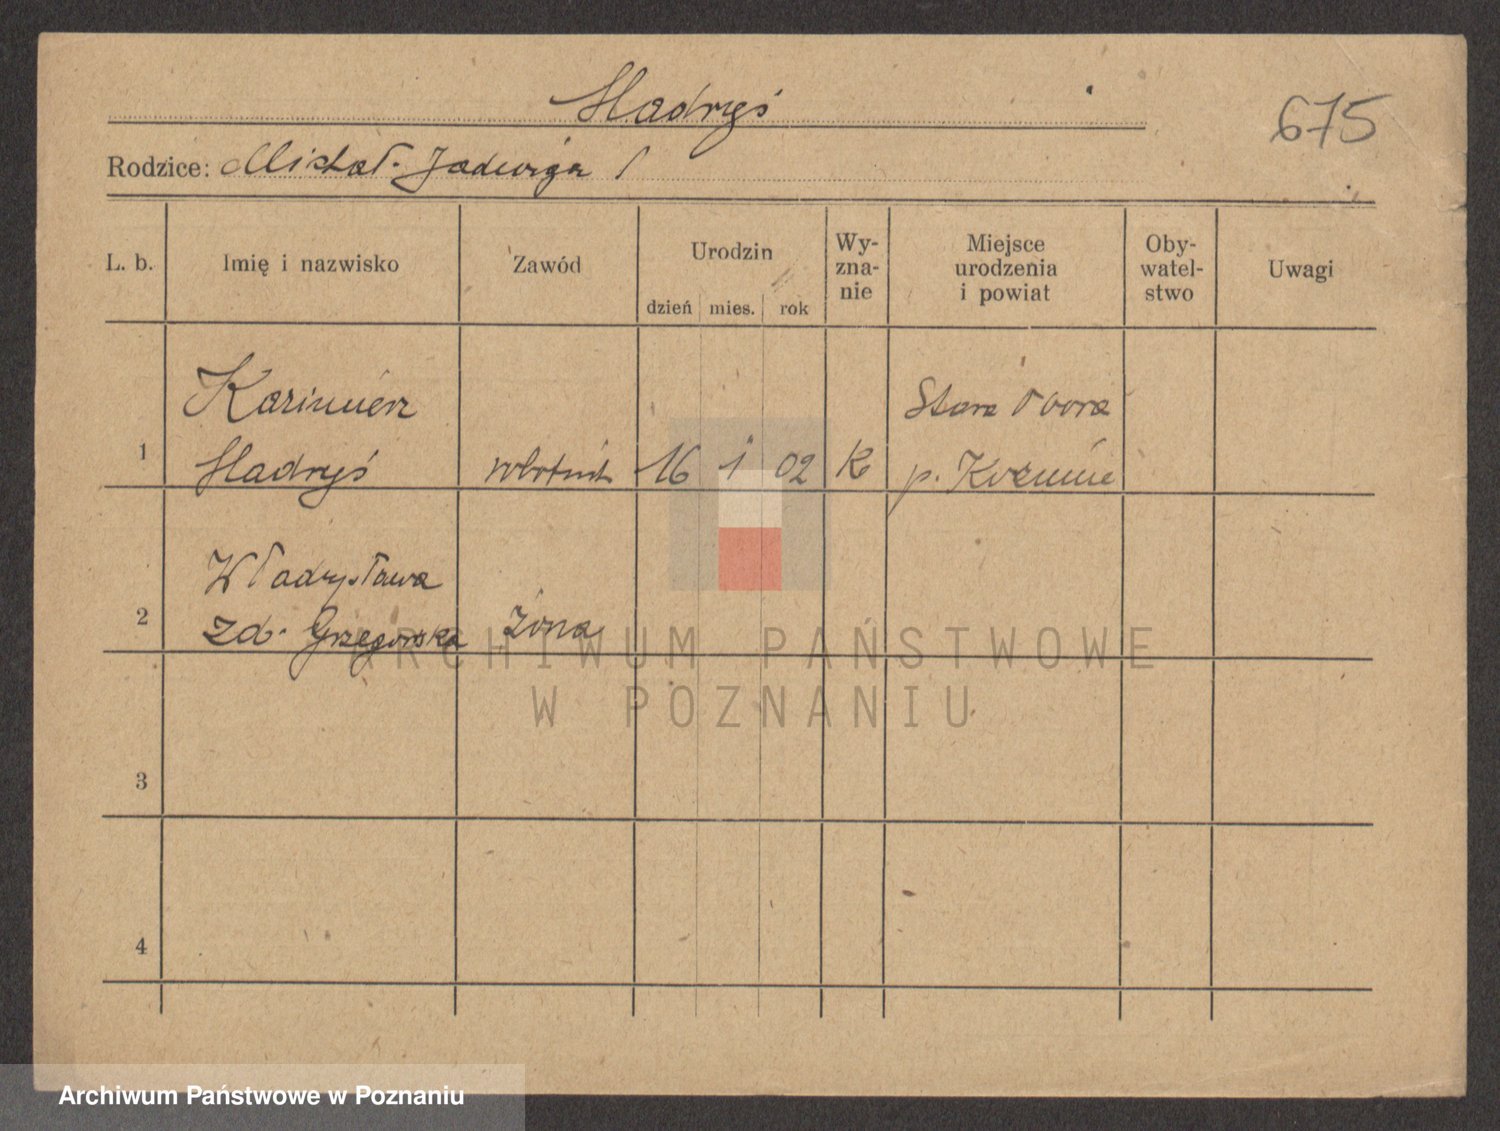 Hadryś
675
Rodzice: Michał - Jadwiga
L. b.
Imię i nazwisko
Zawód
Urodzin
dzień mies. rok
Wy-
zna-
nie
Miejsce
urodzenia
i powiat
Oby-
watel-
stwo
Uwagi
1
Kazimierz
Hadryś
robotnik
16 1 02
K
Stara Obora
p. Koźmin
2
Władysława
zd. Grzegorska
żona
3
4
ARCHIWUM PAŃSTWOWE
W POZNANIU
Archiwum Państwowe w Poznaniu